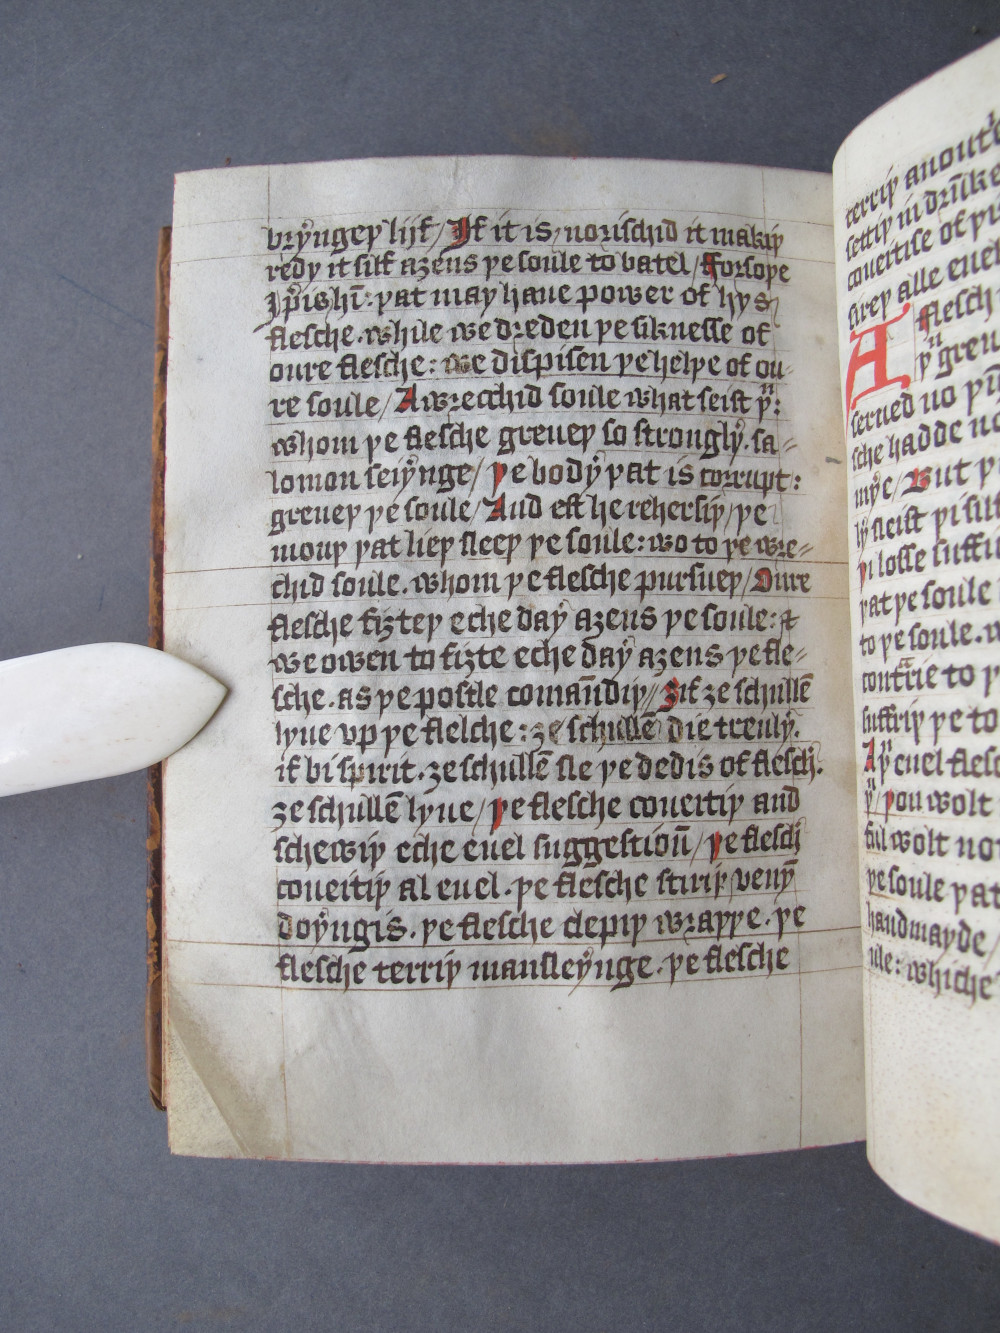 bryngeþ lijf / If it is / norischid it makiþ
redy it silf aȝens þe soule to batel / Forsoþe
þat may haue power of hys
flesche . while we dreden þe siknesse of
oure flesche : we dispisen þe helþe of ou-
re soule / A wrecchid soule what seist þu :
whom þe flesche greueþ so strongly . sa=
lomon seiynge / þe body þat is corrupt :
greueþ þe soule / And eft he rehersiþ / þe
mouþ þat lieþ sleeþ þe soule : wo to þe wre=
chid soule . whom þe flesche pursueþ / Oure
flesche fiȝteþ eche day aȝens þe soule : ⁊
we owen to fiȝte eche day aȝens þe fle=
sche . as þe postle comaūdiþ // Ȝif ȝe schullē
lyue vp þe flesche : ȝe schullē die treuly .
if bi spirit . ȝe schullē sle þe dedis of flesch .
ȝe schullē lyue / þe flesche coueitiþ and
schewiþ eche euel suggestioū / þe flesch
coueitiþ al euel . þe flesche stiriþ venym
doyngis . þe flesche clepiþ wraþþe . þe
flesche terriþ mansleynge . þe flesche
terriþ auout
settiþ in drūke
coueitise of
sireþ alle euel
A flesch
þu greu
serued no
sche hadde no
mye / But
ly sleist þi silf
þi losse suffi
þat þe soule
to þe soule . w
contrarie to þ
suffriþ þe to
A þu euel flesc
þu / þou wolt
ful wolt no
þe soule þat
handmayde /
ule : whiche